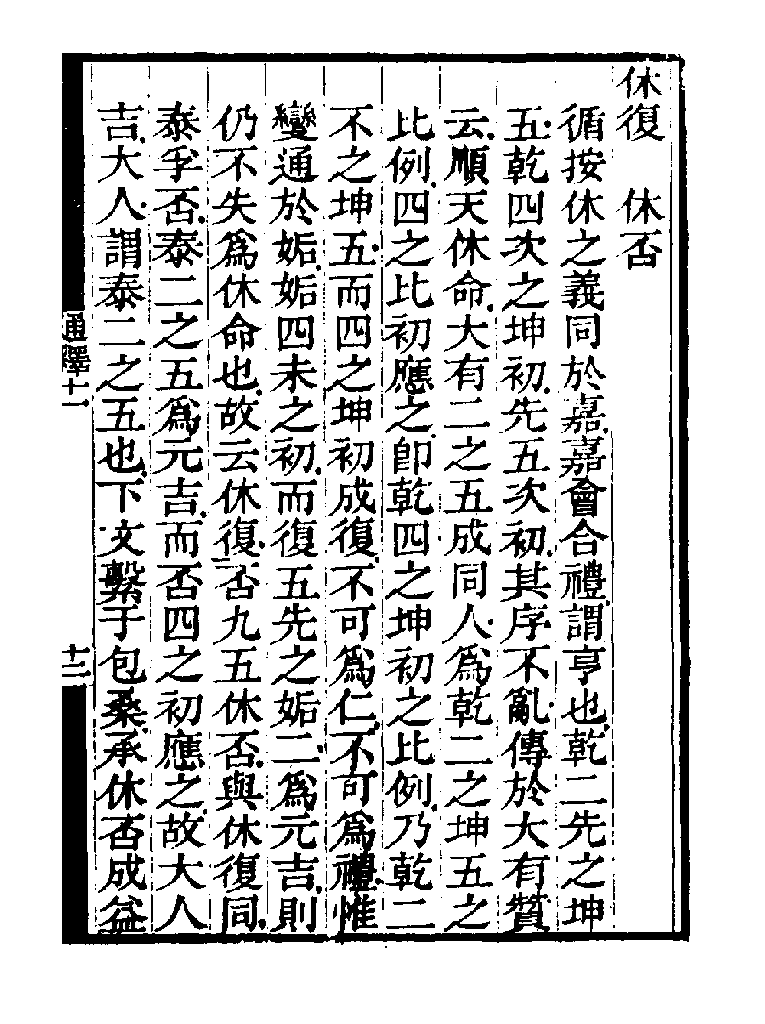 休復　休否
循按休之義同於嘉嘉會合禮謂亨也乾二先之坤
五乾四次之坤初先五次初其序不亂傳於大有贊
云順天休命大有二之五成同人爲乾二之坤五之
比例四之比初應之卽乾四之坤初之比例乃乾二
不之坤五而四之坤初成復不可爲仁不可爲禮惟
變通於姤姤四未之初而復五先之姤二爲元吉則
仍不失爲休命也故云休復否九五休否與休復同
泰孚否泰二之五爲元吉而否四之初應之故大人
吉大人謂泰二之五也下文繫于包桑承休否成益
通釋十一
十二